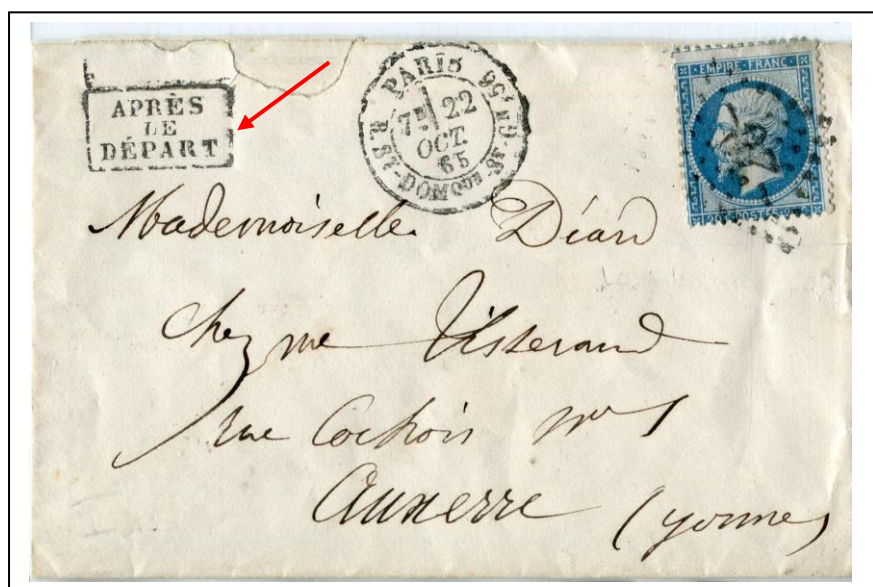 APRÈS
LE
DÉPART
PARIS
22
OCT.
65
EMPIRE FRANC
Mademoiselle Diard
chez me Tisserand
rue Cochois no 1
Auxerre (yonne)